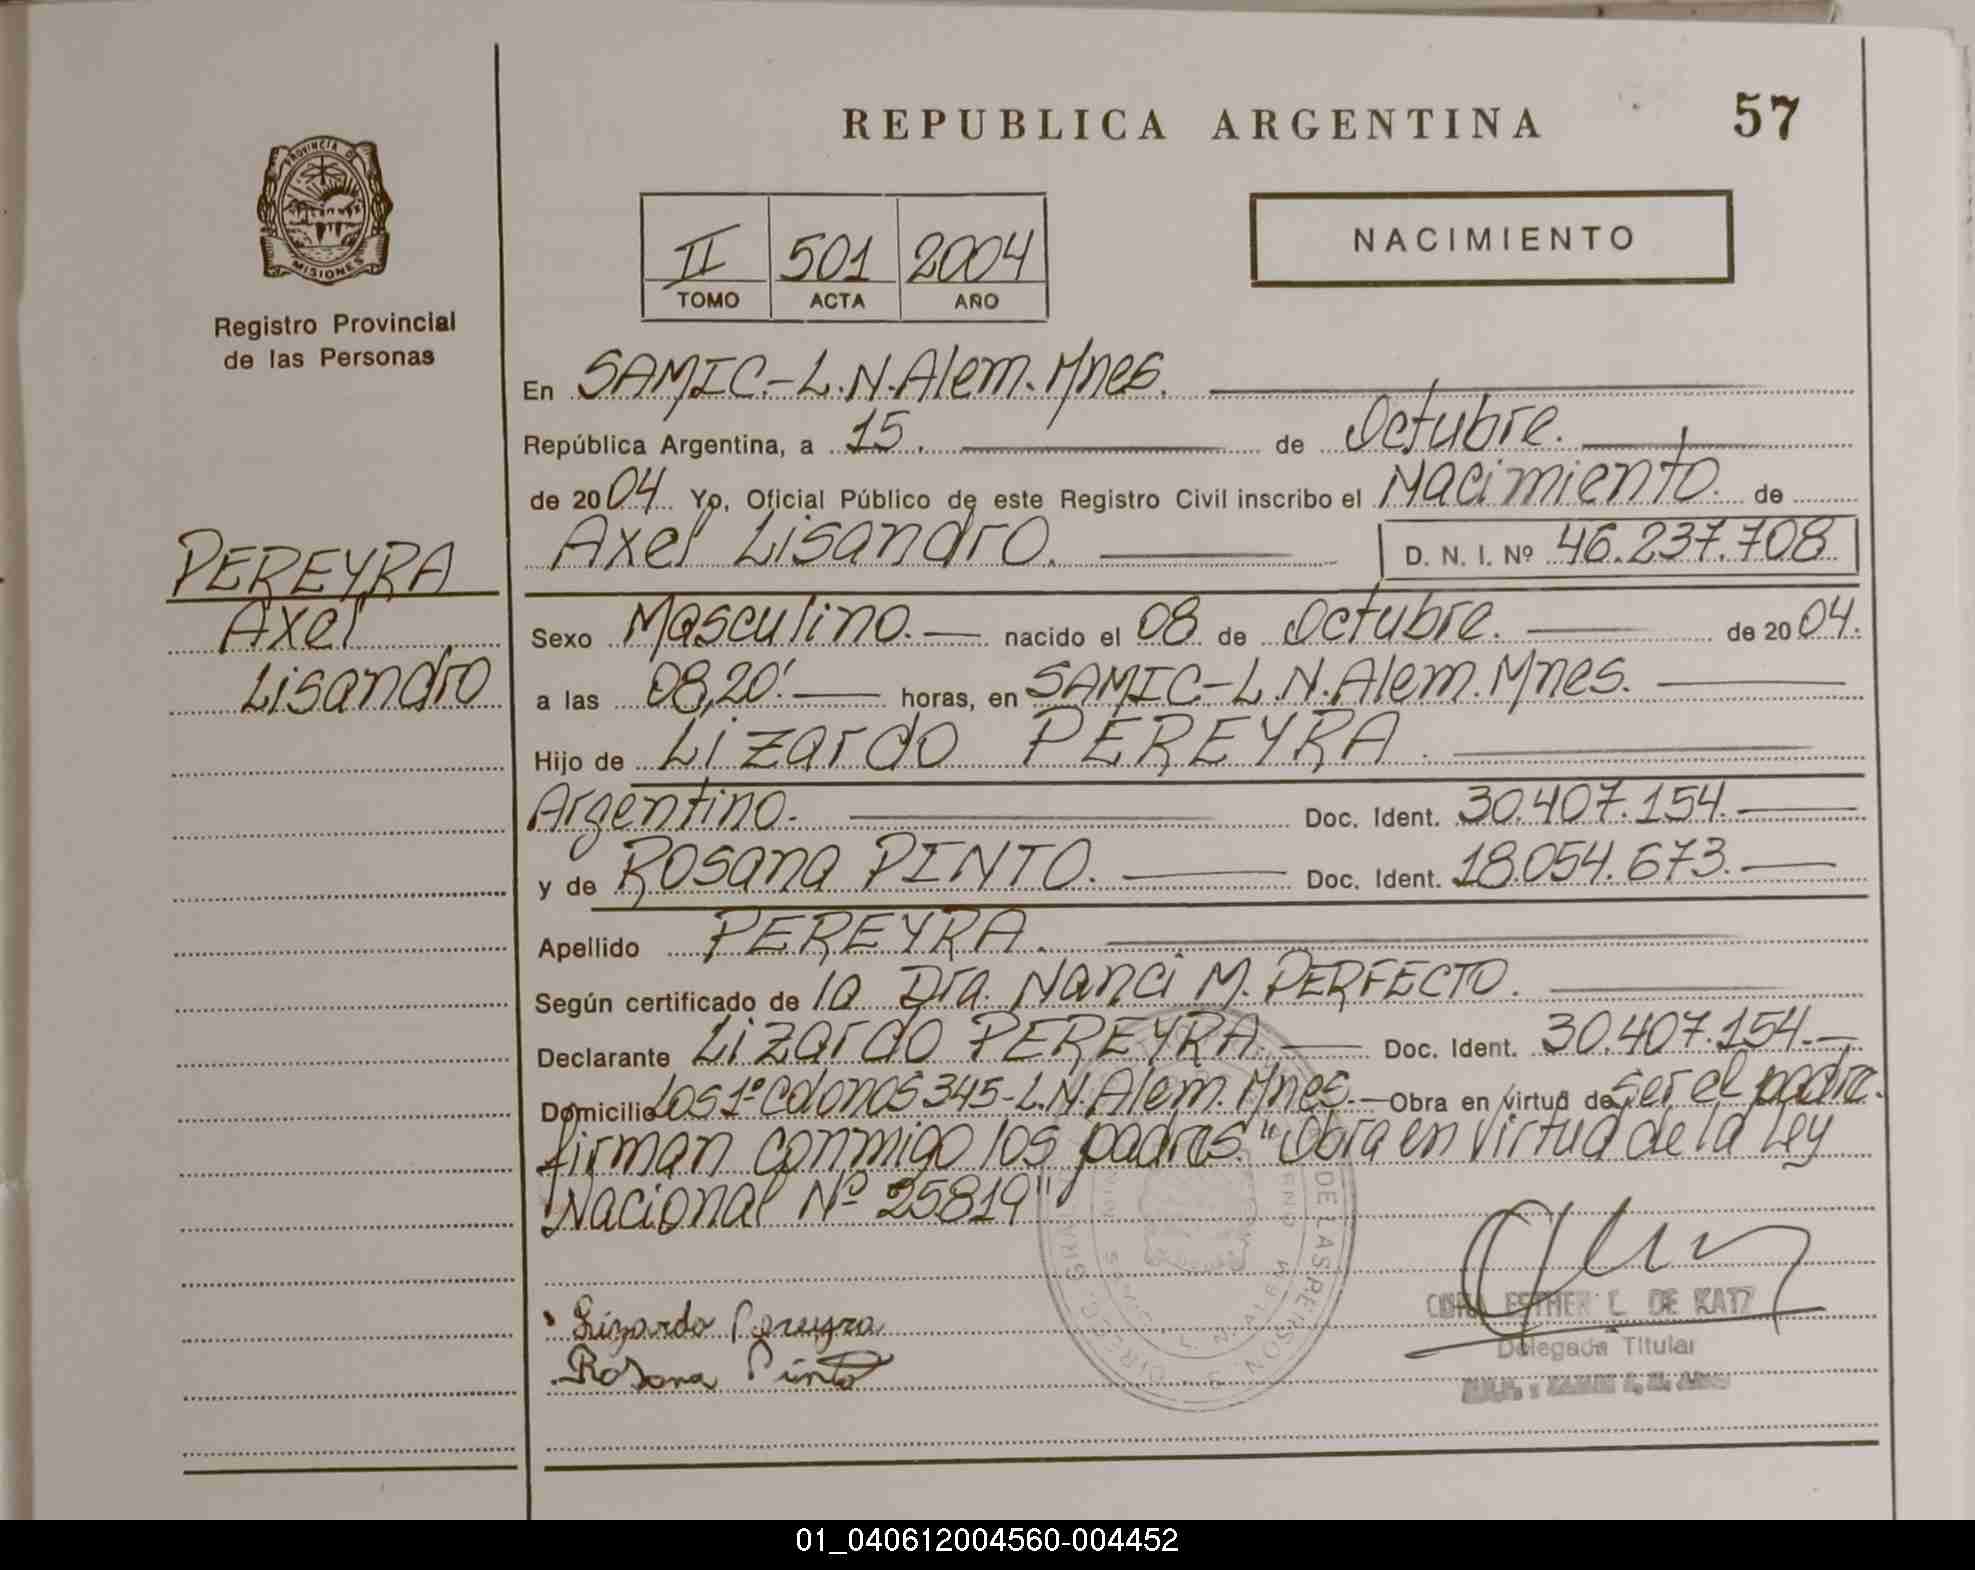 REPUBLICA ARGENTINA
57
PROVINCIA DE
MISIONES
Registro Provincial
de las Personas
II 501 2004
TOMO ACTA AÑO
NACIMIENTO
En SAMIC.-L.N.Alem.Mnes.
República Argentina, a 15. de Octubre.
de 2004. Yo, Oficial Público de este Registro Civil inscribo el Nacimiento. de
Axel Lisandro. D. N. I. Nº 46.237.708
PEREYRA
Axel
Lisandro
Sexo Masculino.- nacido el 08 de Octubre. de 2004.
a las 08,20'. horas, en SAMIC-L.N.Alem.Mnes.
Hijo de Lizardo PEREYRA.
Argentino.- Doc. Ident. 30.407.154.-
y de Rosana PINTO. Doc. Ident. 18.054.673.-
Apellido PEREYRA.
Según certificado de la Dra. Nanci M. PERFECTO.
Declarante Lizardo PEREYRA Doc. Ident. 30.407.154.-
Domicilio Los 1º Colonos 345-L.N.Alem.Mnes.- Obra en virtud de ser el padre.
firman conmigo los padres. "Obra en virtud de la Ley
Nacional Nº 25819"
Lizardo Pereyra
Rosana Pinto
ESTHER L. DE KATZ
Delegada Titular
DE LAS PERSONAS
01_040612004560-004452